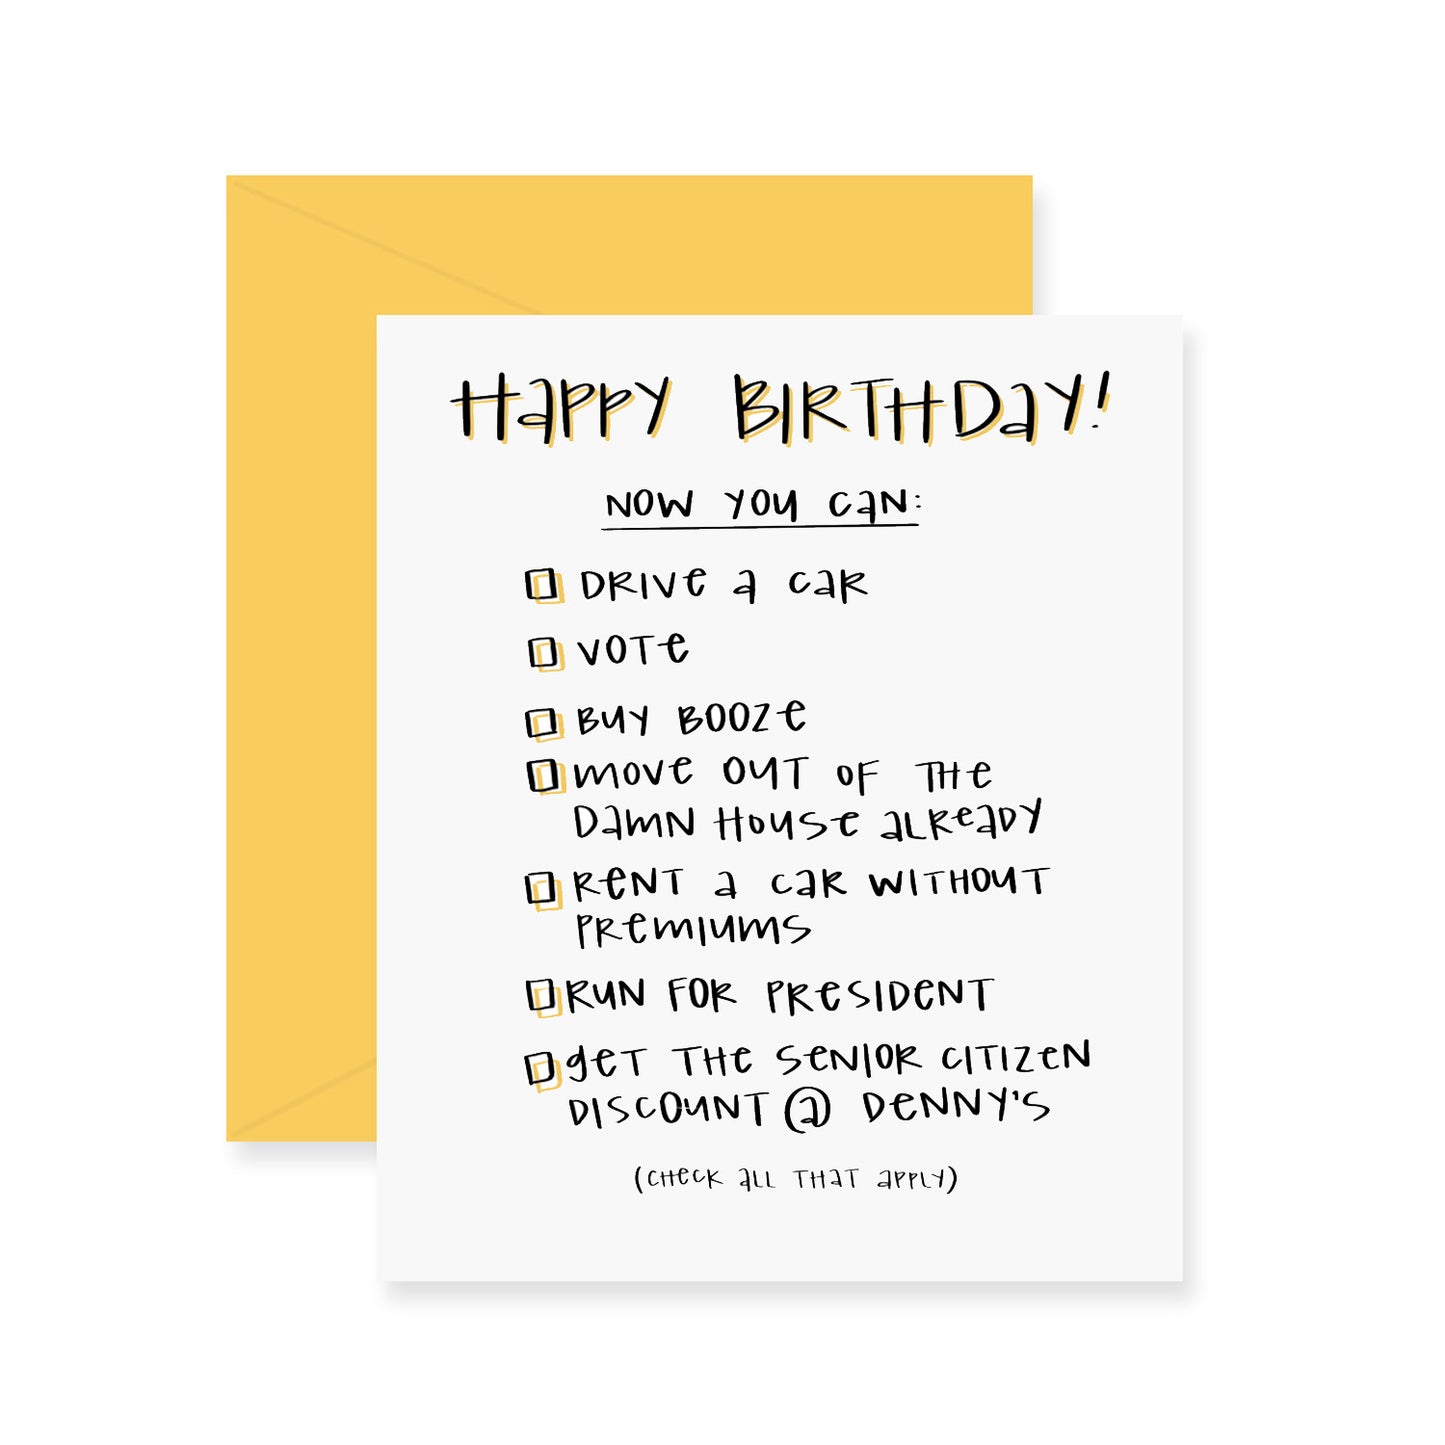 HAPPY BIRTHDAY!
NOW YOU CAN:
DRIVE A CAR
VOTE
BUY BOOZE
MOVE OUT OF THE
DAMN HOUSE ALREADY
RENT A CAR WITHOUT
PREMIUMS
RUN FOR PRESIDENT
GET THE SENIOR CITIZEN
DISCOUNT @ DENNY'S
(CHECK ALL THAT APPLY)